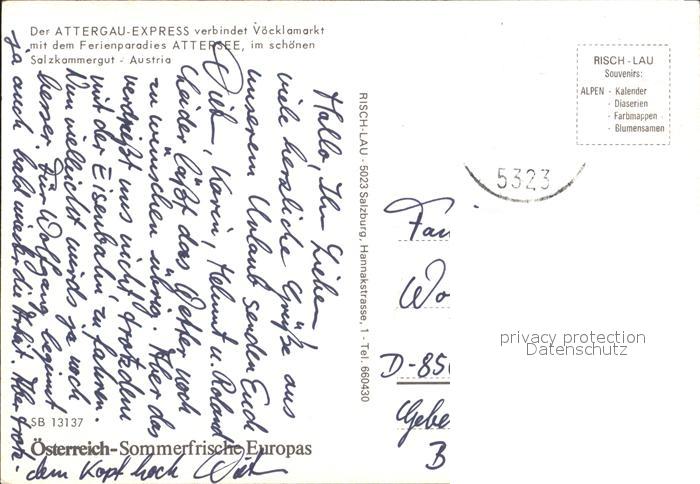 Der ATTERGAU-EXPRESS verbindet Vöcklamarkt
mit dem Ferienparadies ATTERSEE, im schönen
Salzkammergut - Austria
Hallo, Ihr Lieben!
viele herzliche Grüße aus
unserem Urlaub senden Euch
Dieth, Karin, Helmut u. Roland
Leider läßt das Wetter noch
zu wünschen übrig. Aber das
verdrießt uns nicht trotzdem
mit der Eisenbahn zu fahren.
Nun vielleicht wirds ja noch
besser. Für Wolfgang beginnt
ja auch bald wieder die Arbeit. Aber trotz-
dem Kopf hoch
SB 13137
Österreich-Sommerfrische Europas
RISCH-LAU - 5023 Salzburg, Hannakstrasse, 1 - Tel. 660430
RISCH - LAU
Souvenirs:
ALPEN - Kalender
- Diaserien
- Farbmappen
- Blumensamen
5323
Fa
Wo
D-85
Gebe
B
privacy protection
Datenschutz